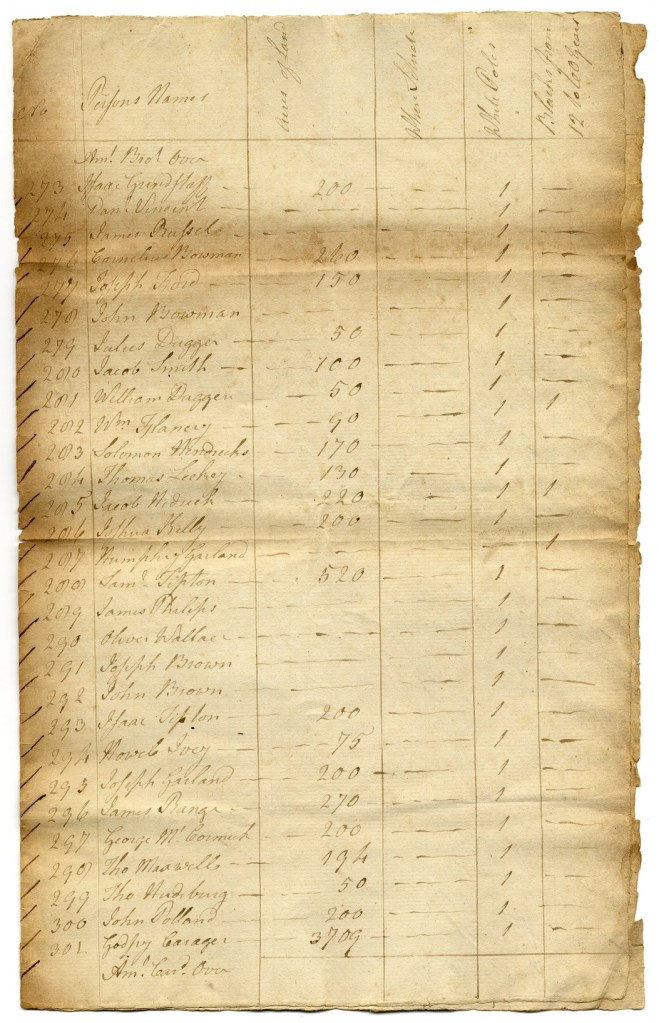 No Persons Names Acres of Land White Poles Blacks from 12 to 60 Years
Amt. Brot. Over
273 Isaac Grindstaff — 200 — — 1 —
274 Danl. Vincent — — — — 1 —
275 James Russel — — — — 1 —
276 Cornelius Bowman — 260 — — 1 —
277 Joseph Ford — 150 — — 1 —
278 John Bowman — — — — 1 —
279 Julius Dugger — 50 — — 1 —
280 Jacob Smith — 100 — — 1 —
281 William Dugger — 50 — — 1 1
282 Wm. Flanery — 90 — — 1 —
283 Solomon Hendricks — 170 — — 1 —
284 Thomas — 130 — — 1 —
285 Jacob — 220 — — 1 1
286 Joshua Kelly — 200 — — 1 —
287 Humphry Garland — — — — — 1
288 Saml. Tipton — 520 — — 1 —
289 James Philips — — — — 1 —
290 Oliver Wallace — — — — 1 —
291 Joseph Brown — — — — 1 —
292 John Brown — — — — 1 —
293 Isaac Tipton — 200 — — 1 —
294 Howel Ivey — 75 — — 1 —
295 Joseph Garland — 200 — — 1 —
296 James Range — 270 — — 1 —
297 George McCormick — 200 — — 1 —
298 Tho Maxwells — 194 — — 1 —
299 Tho — 50 — — 1 —
300 John Polland — 200 — — 1 —
301 Godfry Carager — 3709 — — 1 —
Amt. Card. Over